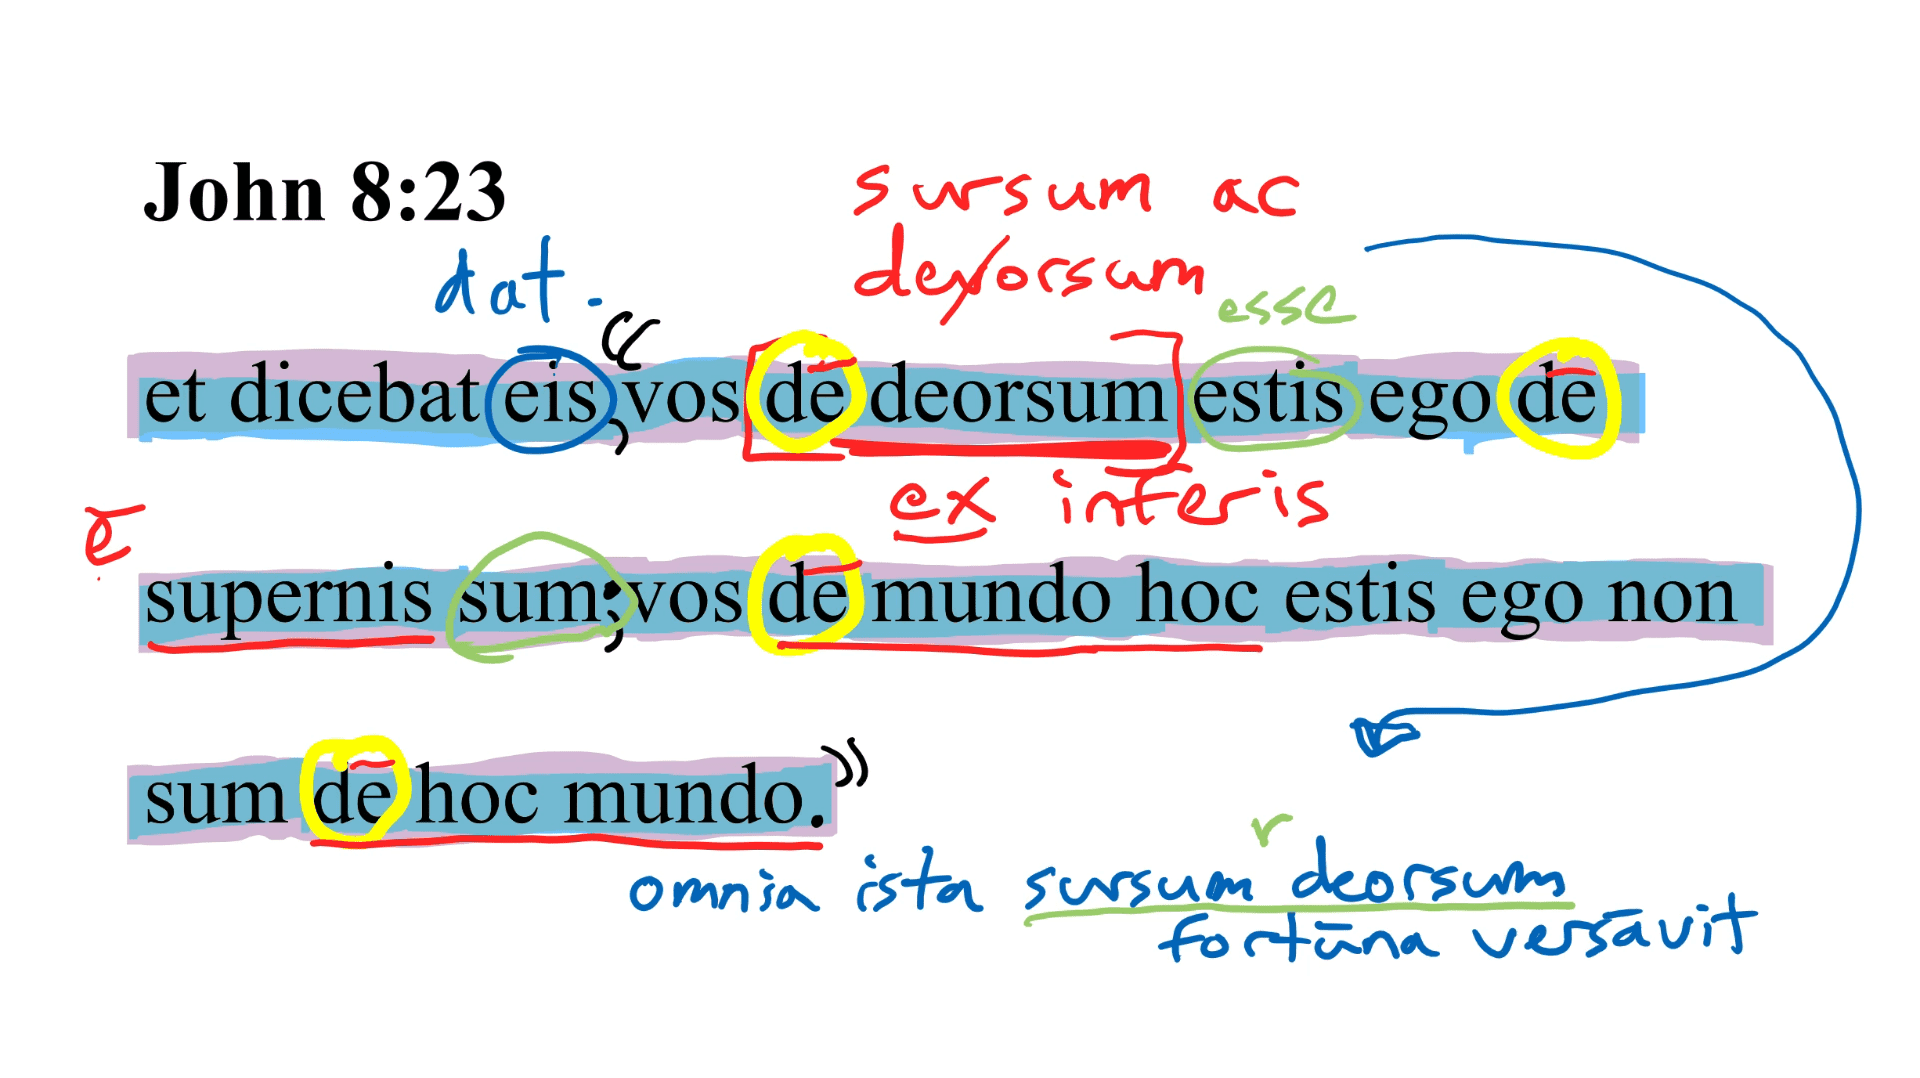 John 8:23
sursum ac
devorsum
dat.
esse
et dicebat eis, “vos dē deorsum estis ego dē
ex inferis
ē
supernis sum; vos dē mundo hoc estis ego non
sum dē hoc mundo.”
r
omnia ista sursum deorsum
fortūna versāvit